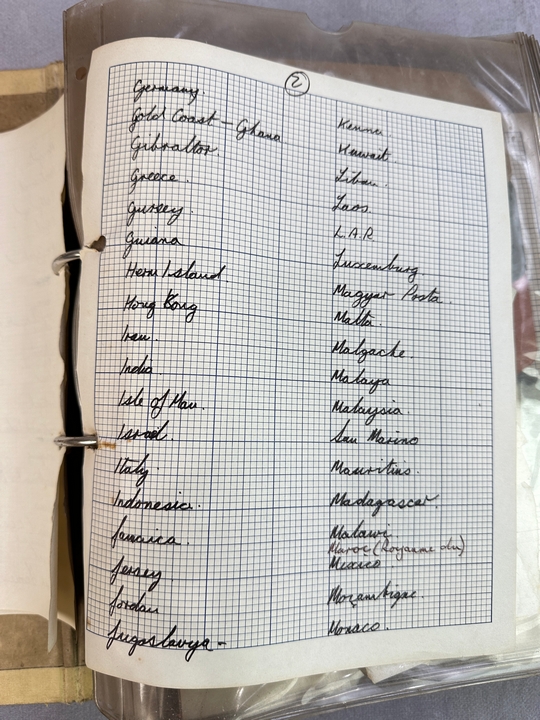 2
Germany.
Gold Coast – Ghana
Gibraltar.
Greece.
Gursey.
Guiana
Herm Island
Hong Kong
Iran.
India.
Isle of Man.
Israel.
Italy.
Indonesia.
Jamaica.
Jersey
Jordan
Jugoslavija –
Kenna
Kuwait.
Liban.
Laos.
L.A.R.
Luxemburg.
Magyar Posta.
Malta.
Malgache.
Malaya
Malaysia.
San Marino
Mauritius.
Madagascar.
Malawi.
Maroc (Royaume du)
Mexico
Moçambique.
Monaco.